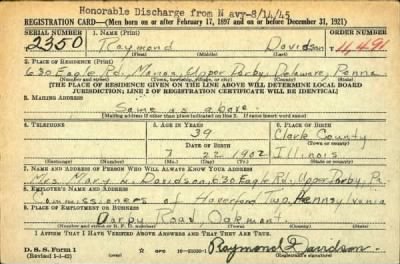 Honorable Discharge from Navy-8/14/45
REGISTRATION CARD—(Men born on or after February 17, 1897 and on or before December 31, 1921)
SERIAL NUMBER 1. NAME (Print) ORDER NUMBER
2350 Raymond Davidson 11,491
(First) (Middle) (Last)
2. PLACE OF RESIDENCE (Print)
630 Eagle Rd., Manoa, Upper Darby, Delaware, Penna
(Number and street) (Town, township, village, or city) (County) (State)
[THE PLACE OF RESIDENCE GIVEN ON THE LINE ABOVE WILL DETERMINE LOCAL BOARD
JURISDICTION; LINE 2 OF REGISTRATION CERTIFICATE WILL BE IDENTICAL]
3. MAILING ADDRESS
Same as above.
[Mailing address if other than place indicated on line 2. If same insert word same]
4. TELEPHONE 5. AGE IN YEARS 6. PLACE OF BIRTH
39 Clark County
DATE OF BIRTH (Town or county)
7 22 1902 Illinois
(Exchange) (Number) (Mo.) (Day) (Yr.) (State or country)
7. NAME AND ADDRESS OF PERSON WHO WILL ALWAYS KNOW YOUR ADDRESS
Davidson, 630 Eagle Rd., Upper Darby, Pa.
8. EMPLOYER'S NAME AND ADDRESS
Commissioners of Haverford Twp, Pennsylvania
9. PLACE OF EMPLOYMENT OR BUSINESS
Darby Road, Oakmont.
(Number and street or R. F. D. number) (Town) (County) (State)
I AFFIRM THAT I HAVE VERIFIED ABOVE ANSWERS AND THAT THEY ARE TRUE.
D. S. S. Form 1 Raymond Davidson.
(Revised 1-1-42) (over)